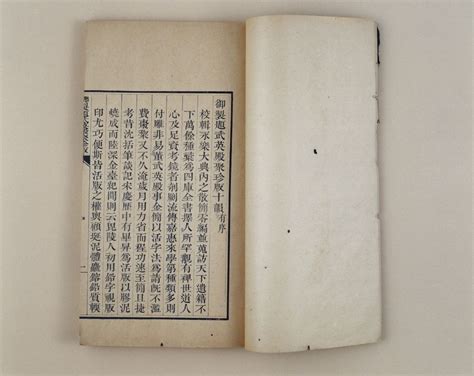 御製題武英殿聚珍版十韻有序
校輯永樂大典內之散簡零編並蒐訪天下遺籍不
下萬餘種彙為四庫全書擇人所罕覯有裨世道人
心及足資考鏡者剞劂流傳嘉惠來學第種類多則
付雕非易董武英殿事金簡以活字法為請既不濫
費棗棃又不久淹歲月用力省而程功速至簡且捷
考昔沈括筆談記宋慶曆中有畢昇為活版以膠泥
燒成而陸深金臺紀聞則云毘陵人初用鉛字視版
印尤巧便斯皆活版之權輿顧埏泥體麤鎔鉛質輭